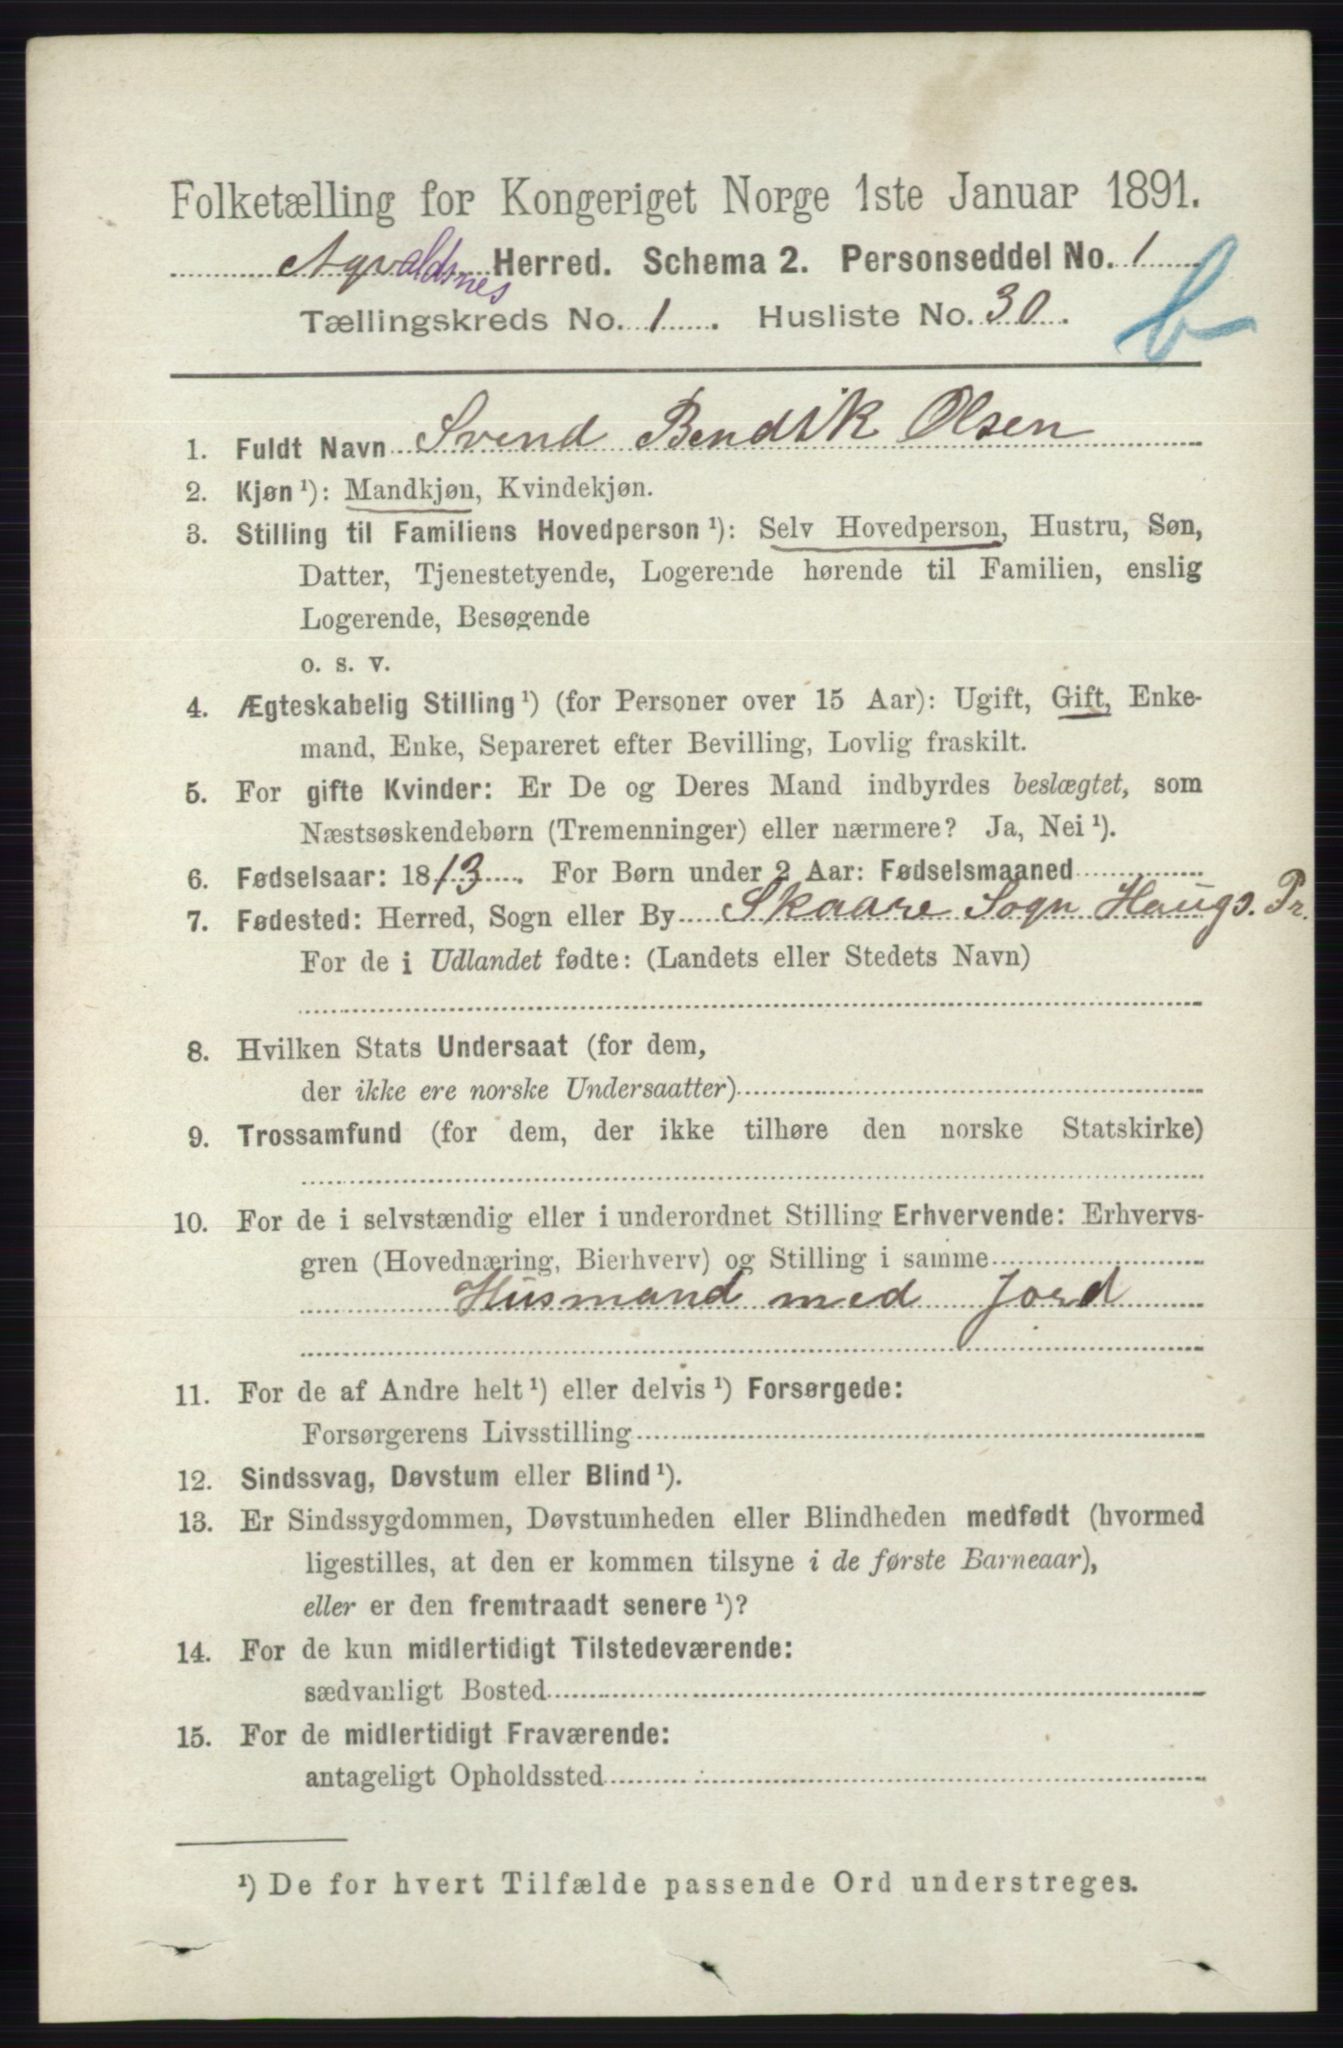 Folketælling for Kongeriget Norge 1ste Januar 1891.
Agvaldsnes Herred. Schema 2. Personseddel No. 1
Tællingskreds No. 1. Husliste No. 30.
b
1. Fuldt Navn Svend Bendik Olsen
2. Kjøn ¹): Mandkjøn, Kvindekjøn.
3. Stilling til Familiens Hovedperson ¹): Selv Hovedperson, Hustru, Søn,
Datter, Tjenestetyende, Logerende hørende til Familien, enslig
Logerende, Besøgende
o. s. v.
4. Ægteskabelig Stilling ¹) (for Personer over 15 Aar): Ugift, Gift, Enke-
mand, Enke, Separeret efter Bevilling, Lovlig fraskilt.
5. For gifte Kvinder: Er De og Deres Mand indbyrdes beslægtet, som
Næstsøskendebørn (Tremenninger) eller nærmere? Ja, Nei ¹).
6. Fødselsaar: 1813. For Børn under 2 Aar: Fødselsmaaned
7. Fødested: Herred, Sogn eller By Skaare Sogn Haugs. Pr.
For de i Udlandet fødte: (Landets eller Stedets Navn)
8. Hvilken Stats Undersaat (for dem,
der ikke ere norske Undersaatter)
9. Trossamfund (for dem, der ikke tilhøre den norske Statskirke)
10. For de i selvstændig eller i underordnet Stilling Erhvervende: Erhvervs-
gren (Hovednæring, Bierhverv) og Stilling i samme
Husmand med Jord
11. For de af Andre helt ¹) eller delvis ¹) Forsørgede:
Forsørgerens Livsstilling
12. Sindssvag, Døvstum eller Blind ¹).
13. Er Sindssygdommen, Døvstumheden eller Blindheden medfødt (hvormed
ligestilles, at den er kommen tilsyne i de første Barneaar),
eller er den fremtraadt senere ¹)?
14. For de kun midlertidigt Tilstedeværende:
sædvanligt Bosted
15. For de midlertidigt Fraværende:
antageligt Opholdssted
¹) De for hvert Tilfælde passende Ord understreges.